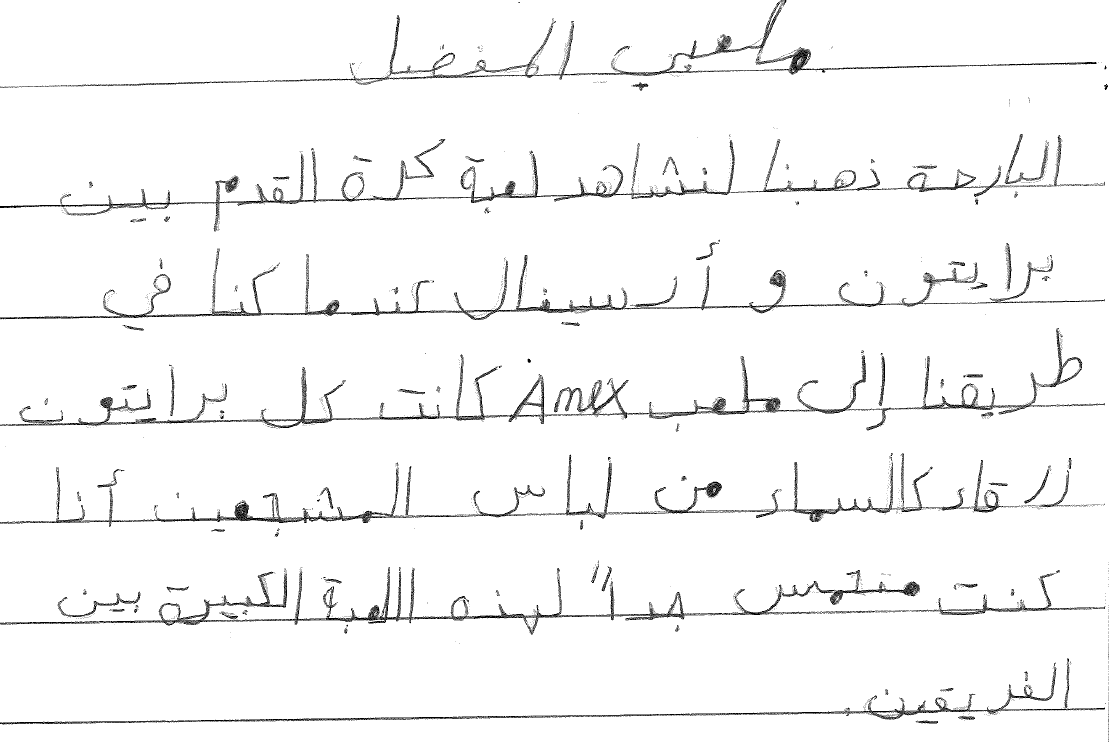 ملعبي المفضل
البارحة ذهبنا لنشاهد لعبة كرة القدم بين
برايتون و أرسينال عندما كنا في
طريقنا إلى ملعب Amex كانت كل برايتون
زرقاء كالسماء من لباس المشجعين أنا
كنت متحمس جداً لهذه اللعبة الكبيرة بين
الفريقين.